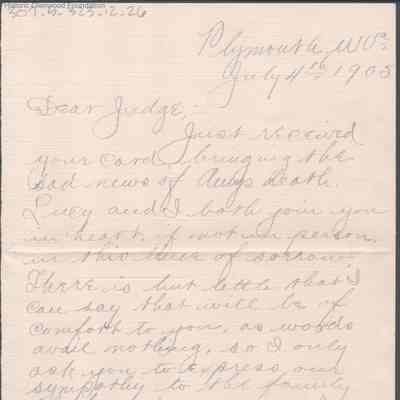 Historic Glenwood Foundation
Plymouth, W Va
July 4th 1905
Dear Judge;-
Just received
your card, bringing the
sad news of death.
Lucy and I both join you
in heart, if not in person,
in this hour of sorrow.
There is but little that I
can say that will be of
comfort to you, as words
avail nothing, so I only
ask you to express our
sympathy to the family